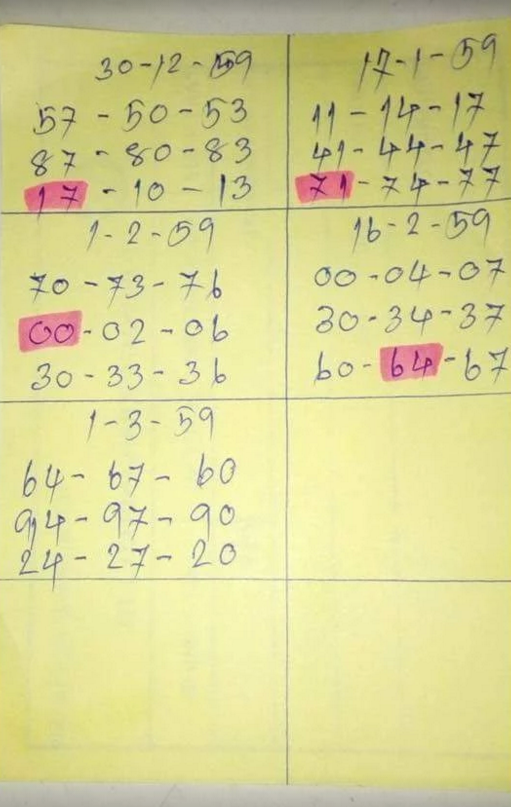 30-12-59
57-50-53
87-80-83
17-10-13
17-1-59
11-14-17
41-44-47
71-74-77
1-2-59
70-73-76
00-02-06
30-33-36
16-2-59
00-04-07
30-34-37
60-64-67
1-3-59
64-67-60
94-97-90
24-27-20